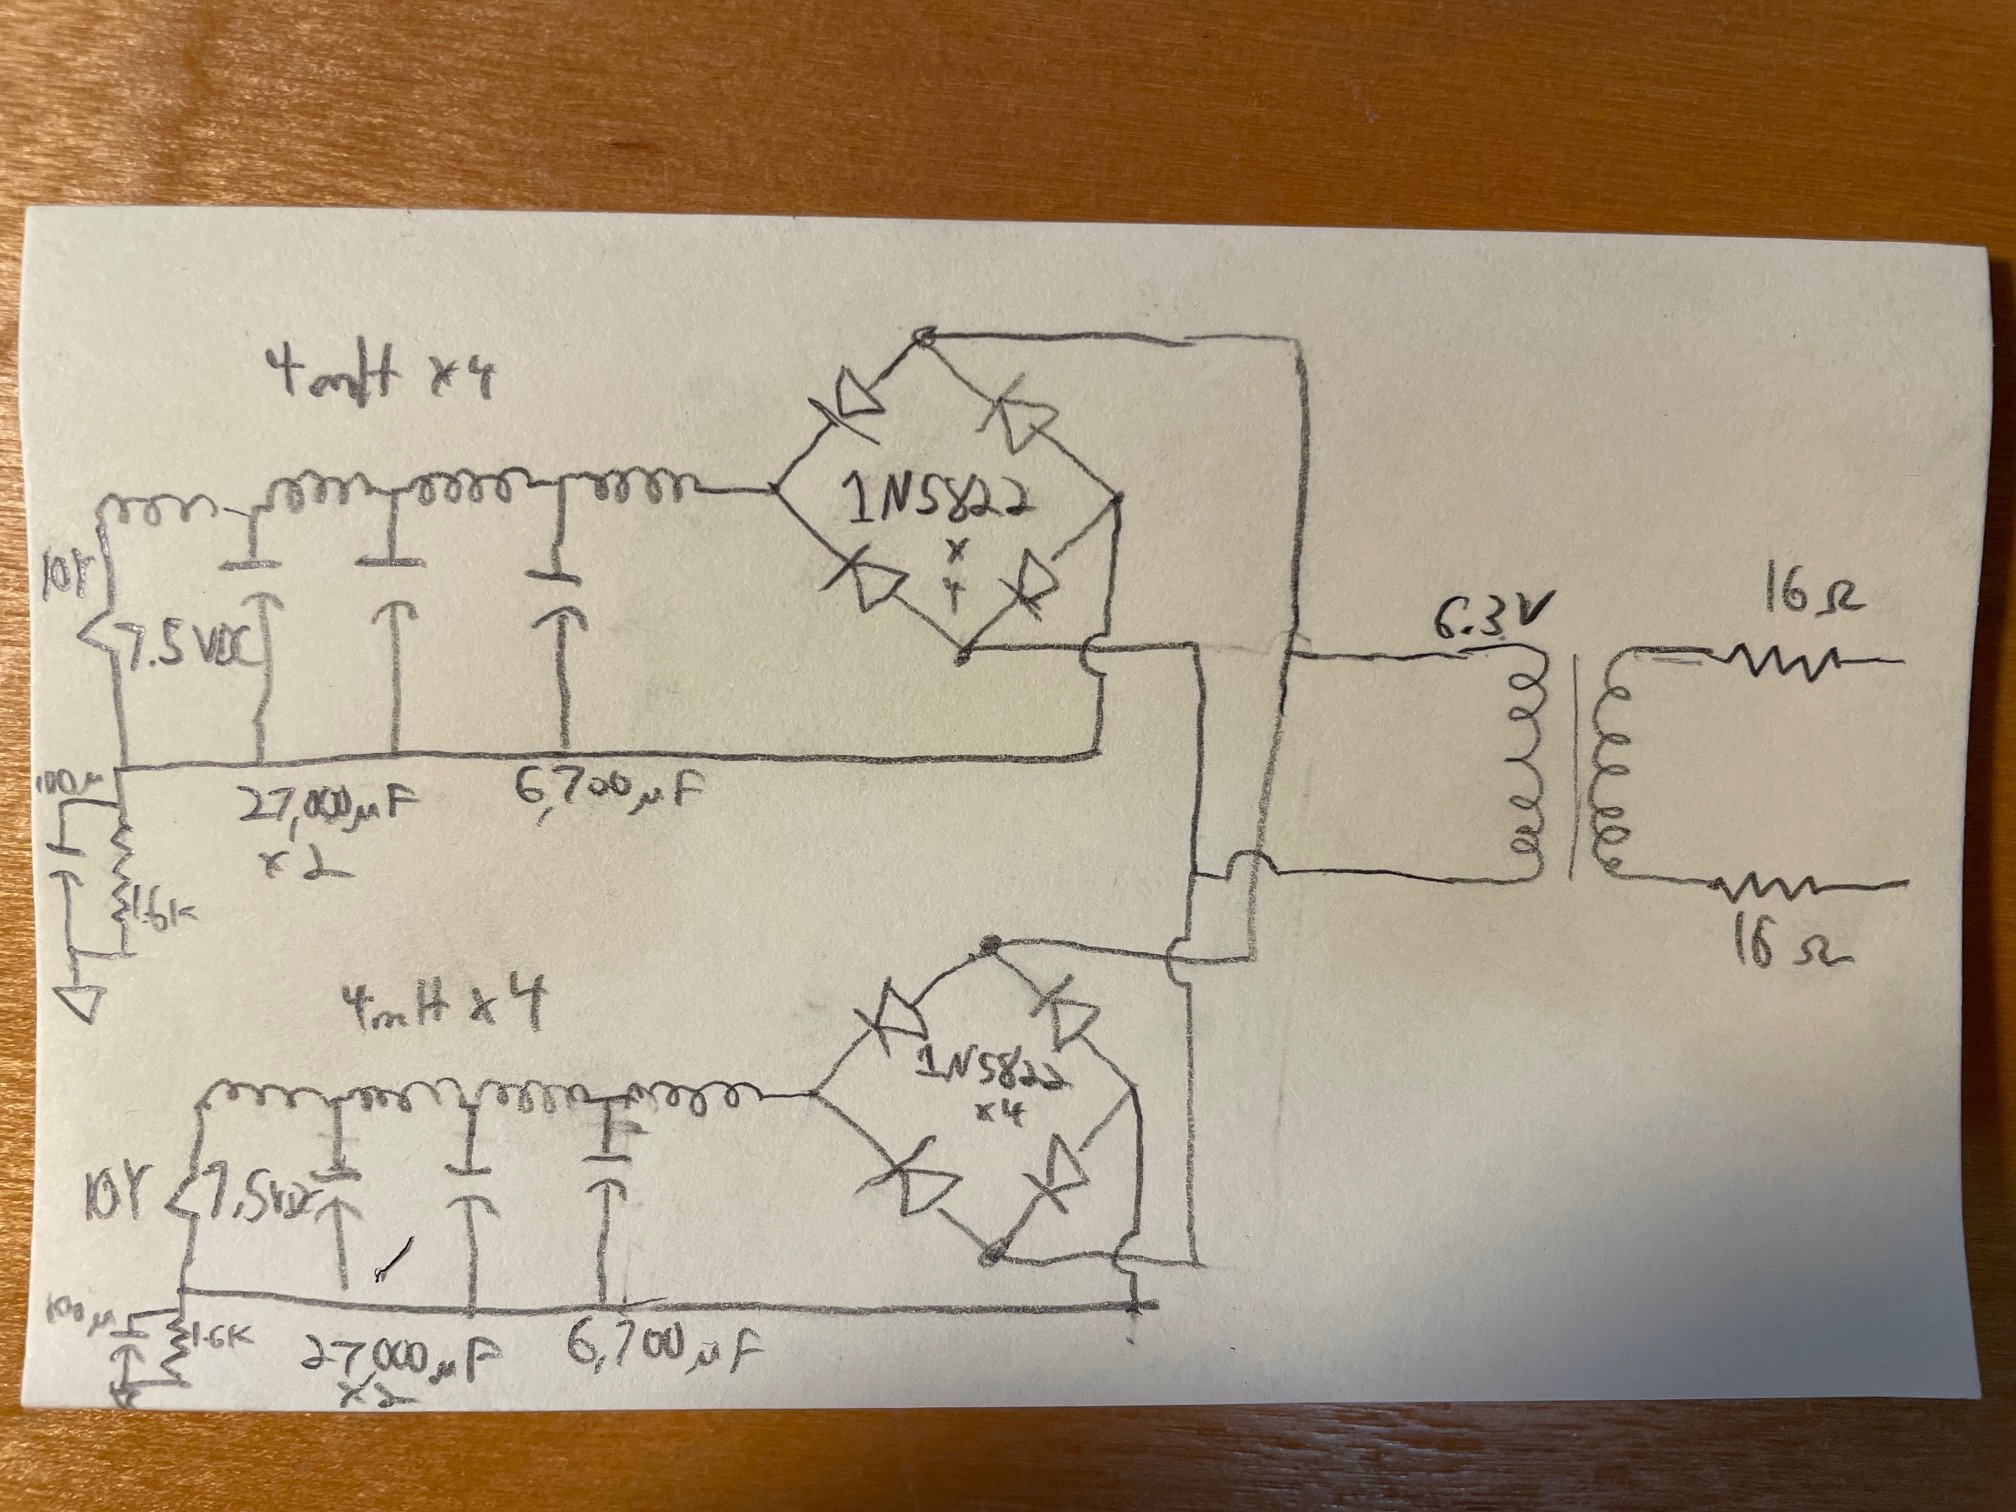 4mH x4
1N5822
x
4
10Y
7.5VDC
6.3V
16Ω
100µ
27,000µF
x2
6,700µF
1.6K
16Ω
4mH x4
1N5822
x4
10Y
7.5VDC
100µ
1.6K
27,000µF
x2
6,700µF